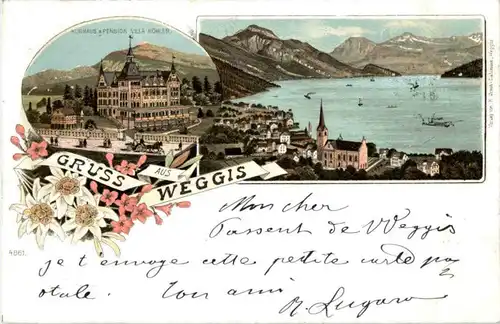 KURHAUS & PENSION VILLA KÖHLER.
GRUSS AUS WEGGIS
4061.
Mon cher
Passent de Weggis
je t envoye cette petite carte pos
otale. Ton ami
R. Lugaro